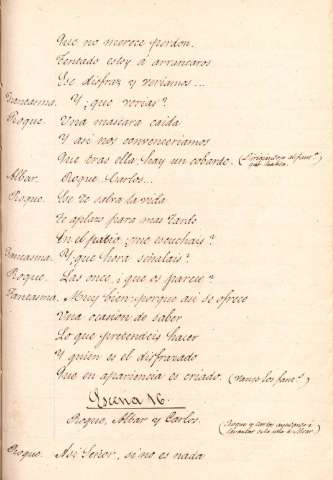 Que no merece perdon.
Tentado estoy á arrancaros
Ese disfraz y veriamos...
Fantasma. Y ¿que verias?
Roque. Una mascara caida
Y asi nos convenceriamos
Que tras ella, hay un cobarde. (Dirigiendose al fant.ª
que habla.)
Albar. Roque. Carlos...
Roque. Ese te salva la vida
Te aplazo para mas tarde
En el patio; ¿me escuchais?
Fantasma. Y ¿que hora señalais?
Roque. Las once, ¿que os parece?
Fantasma. Muy bien: porque asi se ofrece
Una ocasion de saber
Lo que pretendeis hacer
Y quien es el disfrazado
Que en apariencia es criado. (Vanse los fant.ª)
Escena 16.
Roque, Albar y Carlos.
(Roque y Carlos ayudando á
levantar de la silla á Albar)
Roque. Ah! Señor, si no es nada